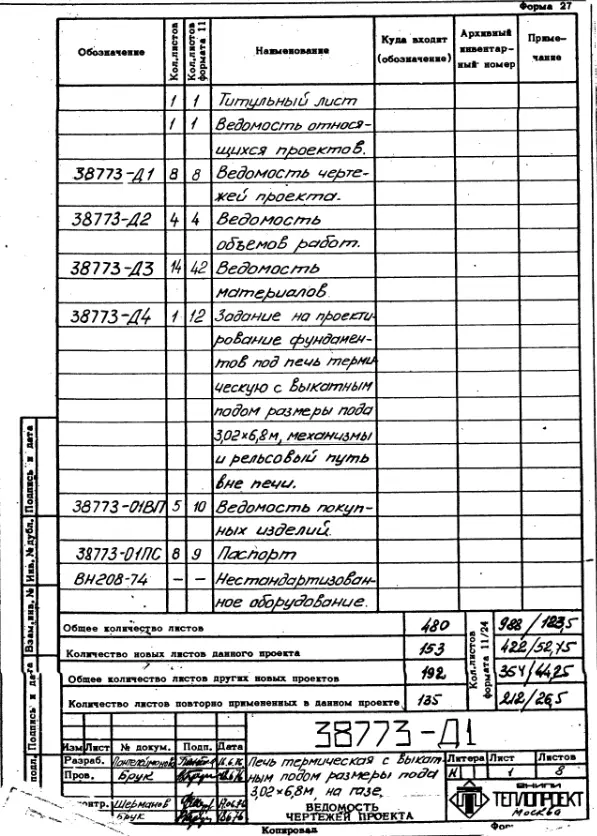 Форма 27
Обозначение
Кол.листов
Кол.листов формата 11
Наименование
Куда входит (обозначение)
Архивный инвентарный номер
Примечание
1 1 Титульный лист
1 1 Ведомость относя-
щихся проектов.
38773-Д1 8 8 Ведомость черте-
жей проекта.
38773-Д2 4 4 Ведомость
объемов работ.
38773-Д3 14 42 Ведомость
материалов
38773-Д4 1 12 Задание на проекти
рование фундамен-
тов под печь терми
ческую с выкатным
подом размеры пода
3,02×6,8м, механизмы
и рельсовый путь
вне печи.
38773-01ВП 5 10 Ведомость покуп-
ных изделий.
38773-01ПС 8 9 Паспорт
ВН208-74 — — Нестандартизован-
ное оборудование.
Общее количество листов 480
Количество новых листов данного проекта 153
Общее количество листов других новых проектов 192
Количество листов повторно примененных в данном проекте 135
Кол.листов формата 11/24
988/123,5
422/52,75
354/44,25
212/26,5
Подпись и дата
Инв.№ дубл.
Взам.инв.№
Подпись и дата
подл.
38773-Д1
Изм Лист № докум. Подп. Дата
Разраб. Пантелеймонова
Пров. Брук
контр. Шерманов
Брук
Печь термическая с выкат-
ным подом размеры пода
3,02×6,8м, на газе.
ВЕДОМОСТЬ
ЧЕРТЕЖЕЙ ПРОЕКТА
Литера Лист Листов
И 1 8
ВНИПИ
ТЕПЛОПРОЕКТ
Москва
Копировал
Фор